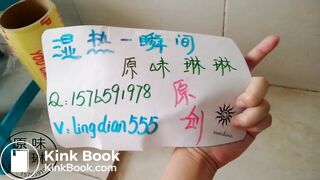 湿热一瞬间
原味琳琳
Q:1576591978
原创
V:lingdian555
原味
Kink Book
KinkBook.com